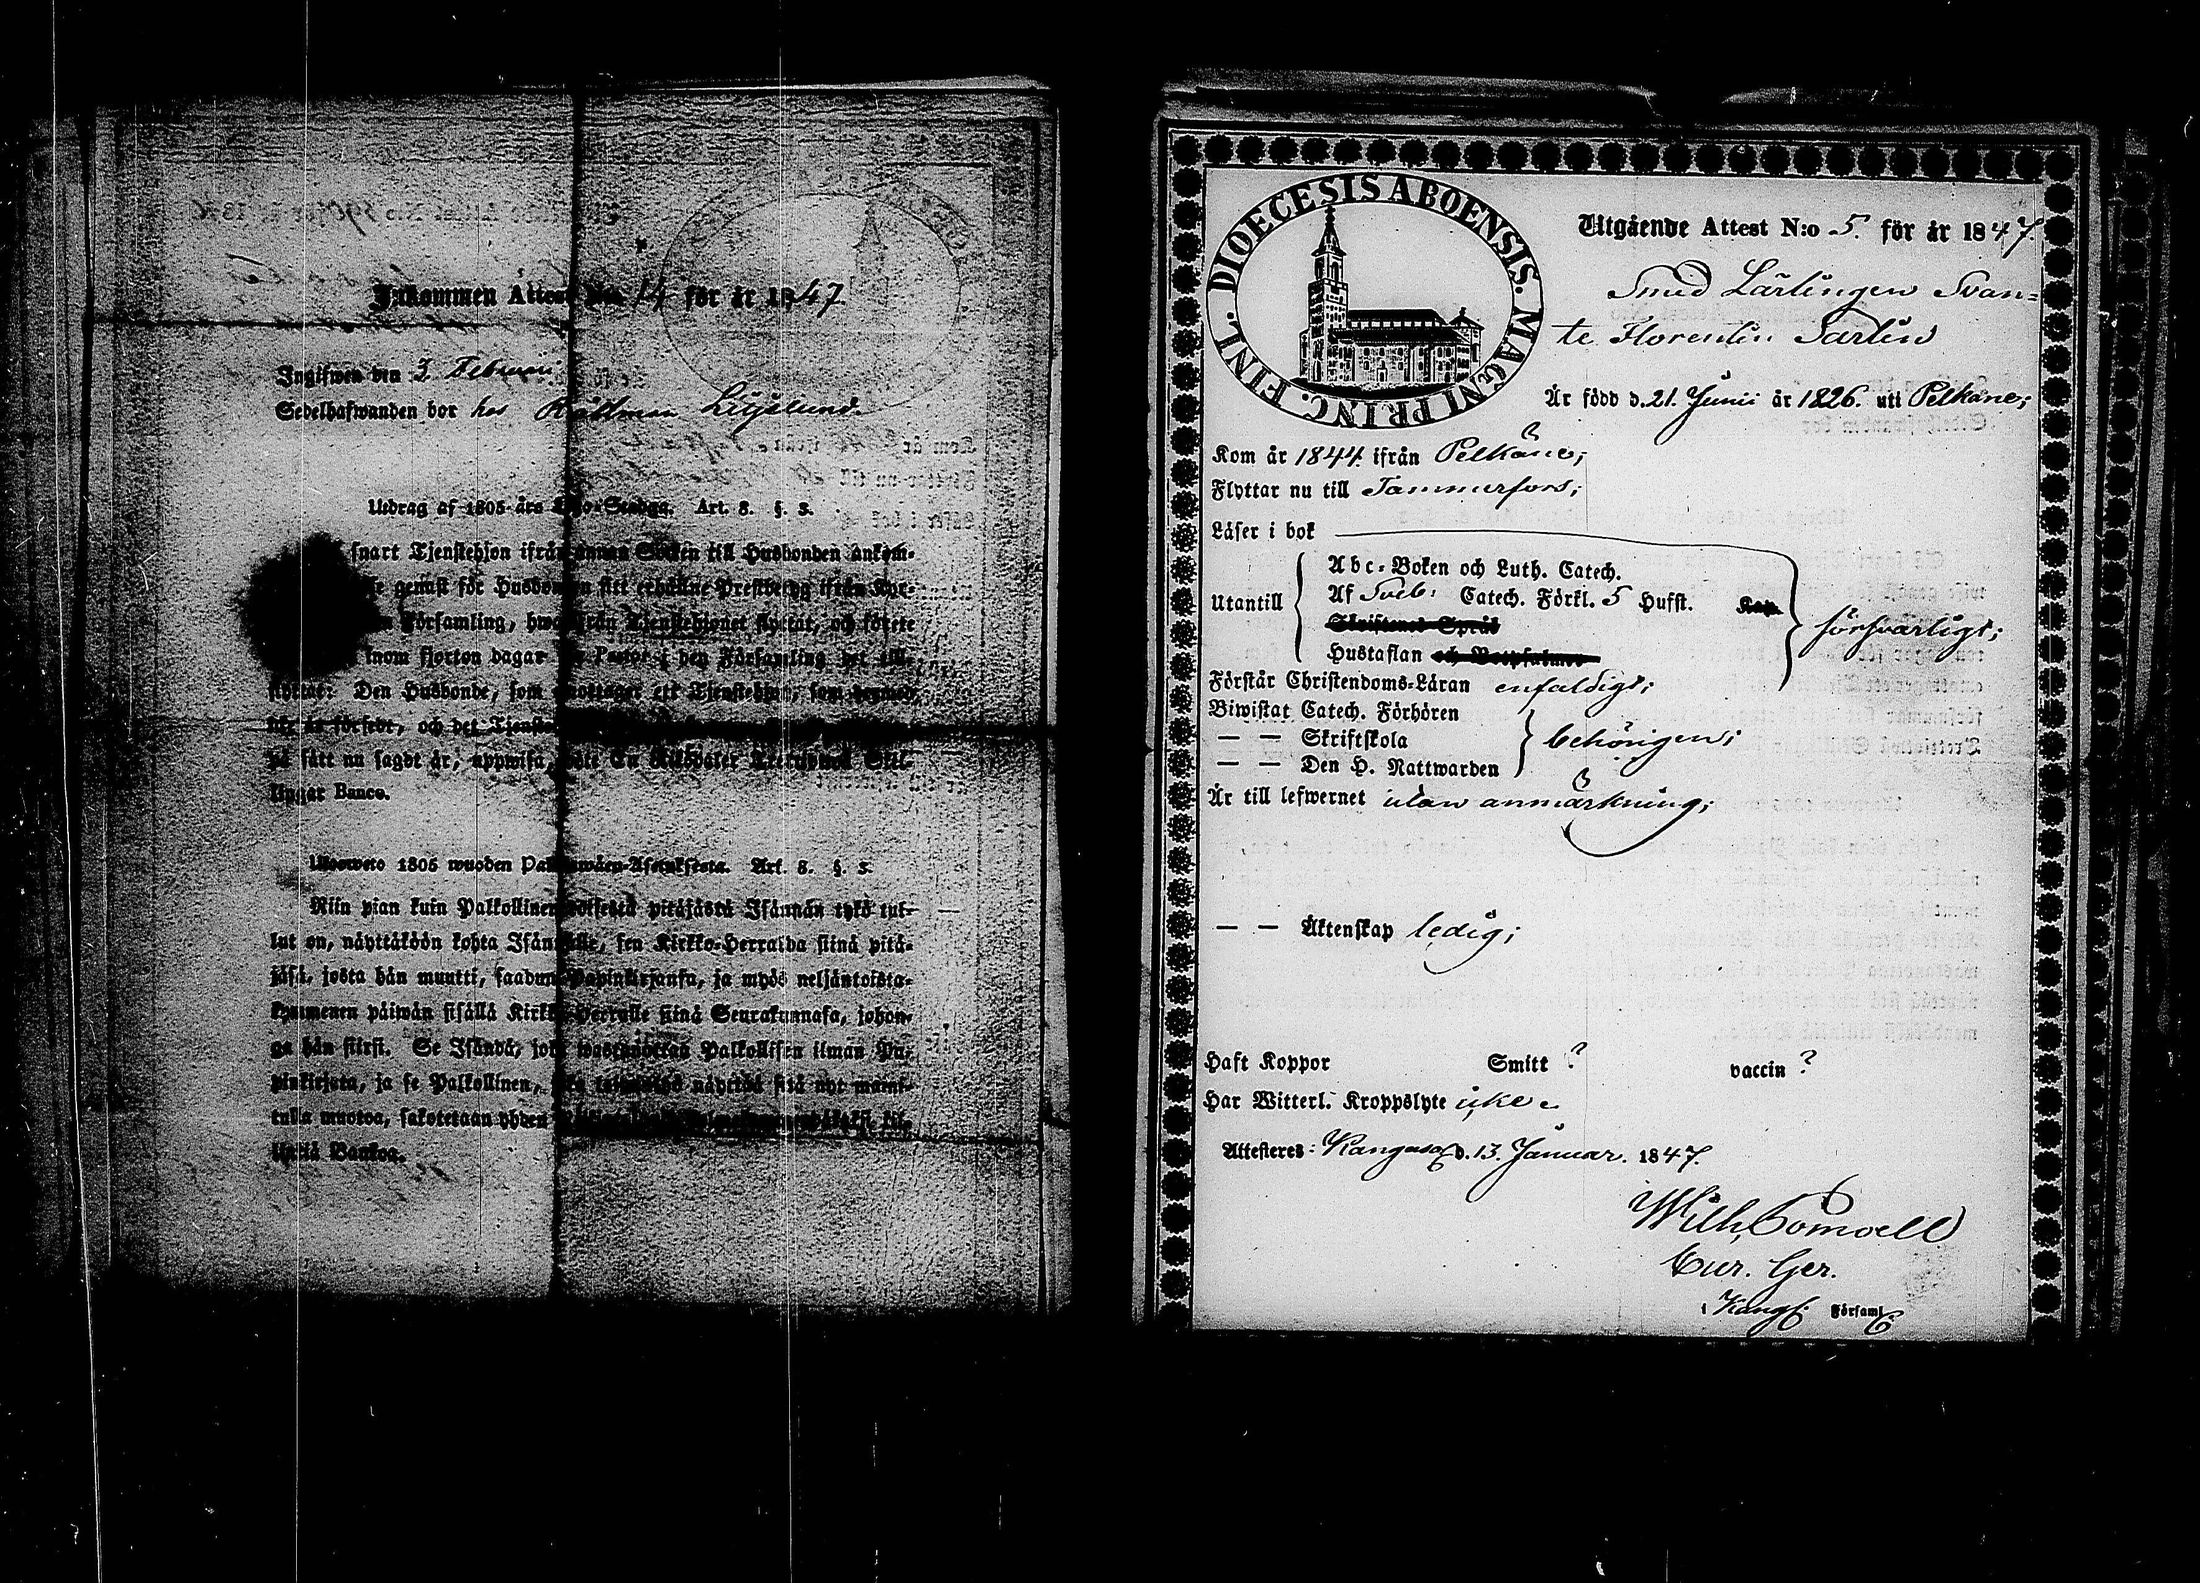 Inkommen Attest N:o 14 för år 1847
Ingifwen den 3 Februarii
Sedelhafwanden bor hos Rådman
Utdrag af 1805 års Lego-Stadga. Art. 8. §. 3.
snart Tjenstehjon ifrån annan Socken till Husbonden ankom-
genast för Husbonden sitt erhållne Prestbetyg ifrån Kyr-
Församling, hwarifrån Tjenstehjonet flyttat, och förete
inom fjorton dagar för Pastor i den Församling det till-
flyttat: Den Husbonde, som emottager ett Tjenstehjon, som
är försedt, och det
på sätt nu sagdt är, uppwisa, böte En Riksdaler Trettiotwå Skil-
lingar Banco.
Ulosweto 1805 wuoden Palkkawäen-Asetuksesta. Art. 8. §. 3.
Niin pian kuin Palkollinen toisesta pitäjästä Isännän tykö tul-
lut on, näyttäköön kohta Isännälle, sen Kirkko-Herralda siinä pitä-
jäsä, josta hän muutti, saadun Papinkirjansa, ja myös neljäntoista-
kymmenen päiwän sisällä Kirkko-Herralle siinä Seurakunnasa, johon-
ga hän siirsi. Se Isändä, joka wastaanottaa Palkollisen ilman Pa-
pinkirjata, ja se Palkollinen, näyttää sitä nyt mainit-
tulla muotoa, sakotetaan yhden
lingiä Bankoa.
DIOECESIS ABOENSIS. MAGNI PRINC. FINL.
Utgående Attest N:o 5. för år 1847.
Smed Lärlingen Svan-
te Florentin Sarlin
Är född d. 21. Junii år 1826. uti Pelkäne;
Kom år 1844. ifrån Pelkäne;
Flyttar nu till Tammerfors;
Läser i bok
Abc-Boken och Luth. Catech.
Utantill Af Sveb: Catech. Förkl. 5 Hufst. Kap. försvarligt;
Skriftenes Språk
Hustaflan och Botpsalmer
Förstår Christendoms-Läran enfaldigt;
Biwistat Catech. Förhören
— — Skriftskola behörigen;
— — Den H. Nattwarden
Är till lefwernet utan anmärkning;
— — Äktenskap ledig;
Haft Koppor Smitt ? vaccin ?
Har Witterl. Kroppslyte icke.
Attesteres: Kangasa d. 13. Januar. 1847.
Wilh.
Cur. Ger.
i Kangs: Församl